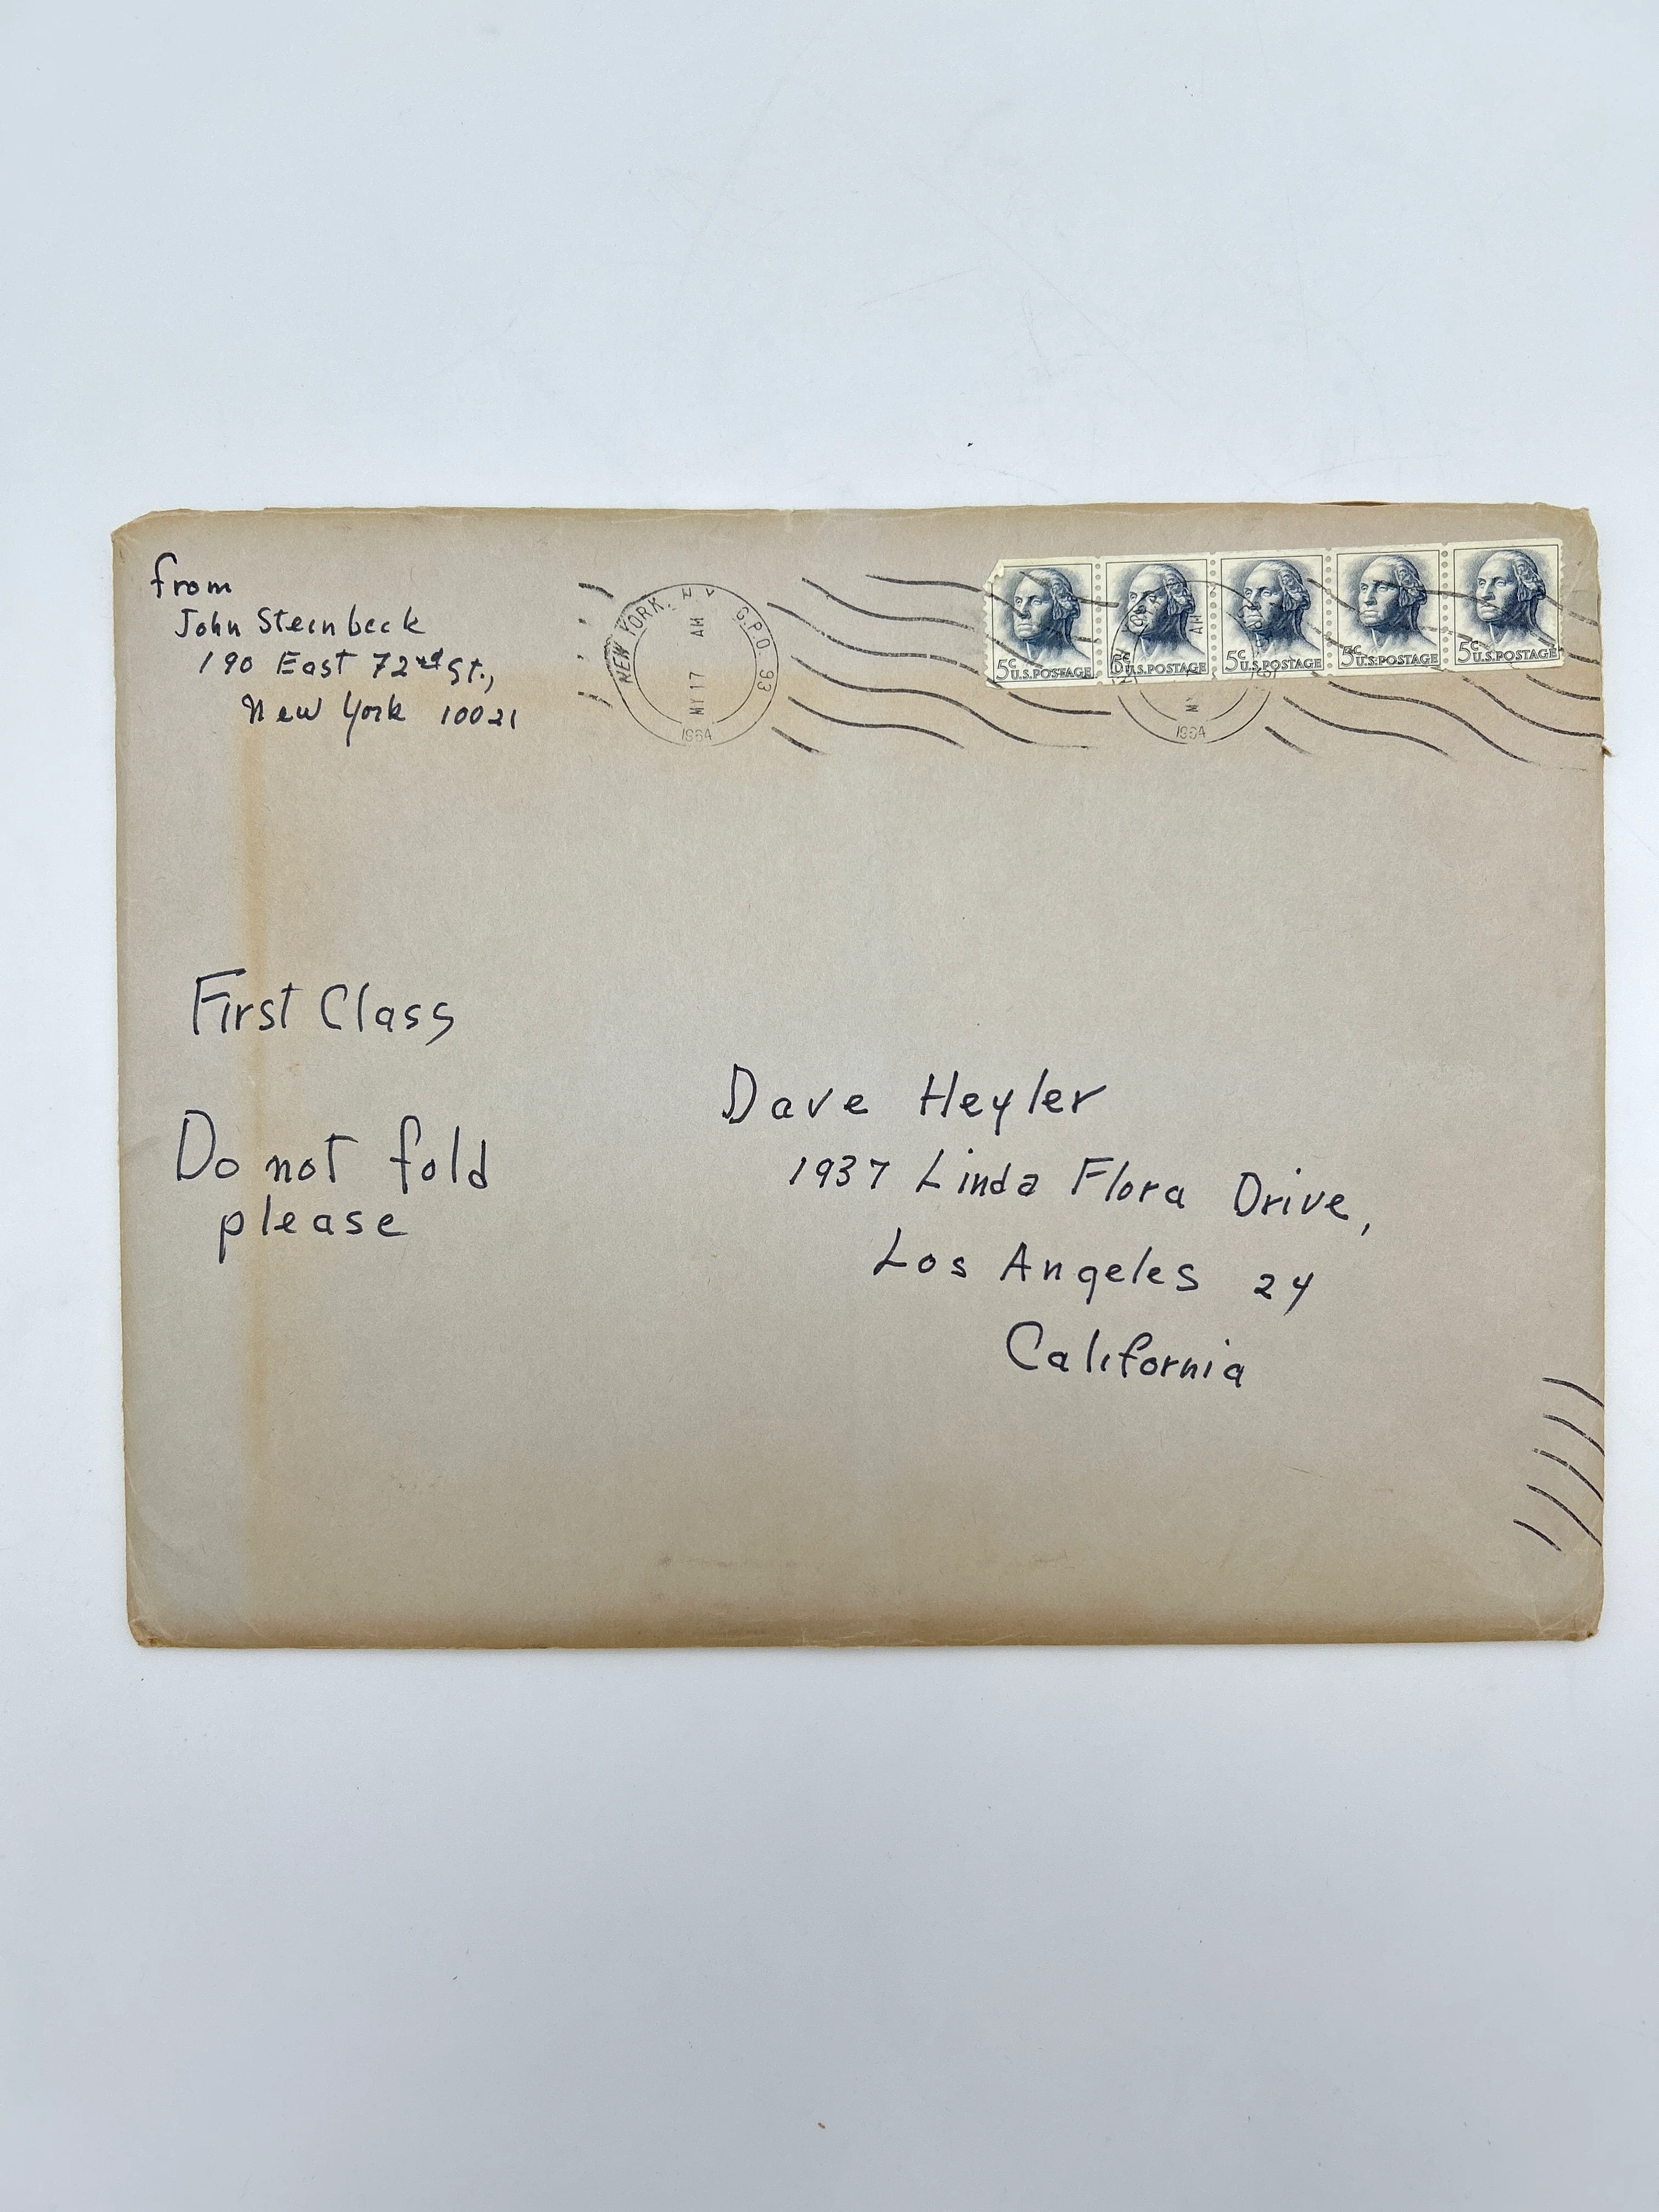 from
John Steinbeck
190 East 72nd St.,
New York 10021
NEW YORK, N Y G.P.O. 93
AM
MY 17
1964
5c U.S. POSTAGE
5c U.S. POSTAGE
5c U.S. POSTAGE
5c U.S. POSTAGE
5c U.S. POSTAGE
AM
1964
First Class
Do not fold
please
Dave Heyler
1937 Linda Flora Drive,
Los Angeles 24
California